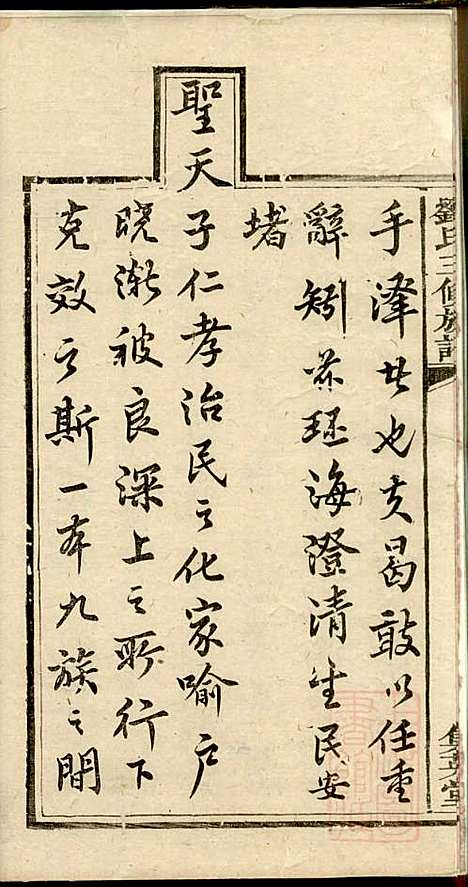 劉氏三修族譜
手澤共也夫曷敢以任重
辭矧茲環海澄清生民安
堵
聖天子仁孝治民之化家喻戶
曉漸被良深上之所行下
克效之斯一本九族之間